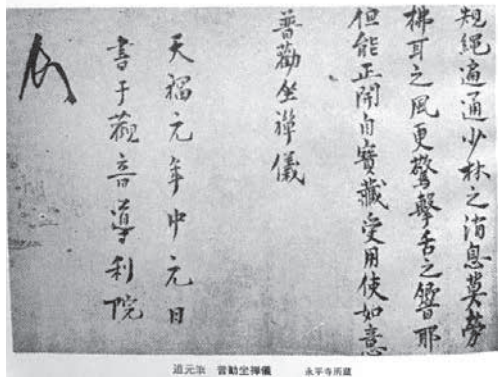 規繩遍通少林之消息莫勞
拂耳之風更驚擊舌之響耶
但能正開自寶藏受用使如意
普勸坐禪儀
天福元年中元日
書于觀音導利院
道元筆 普勸坐禪儀 永平寺所蔵